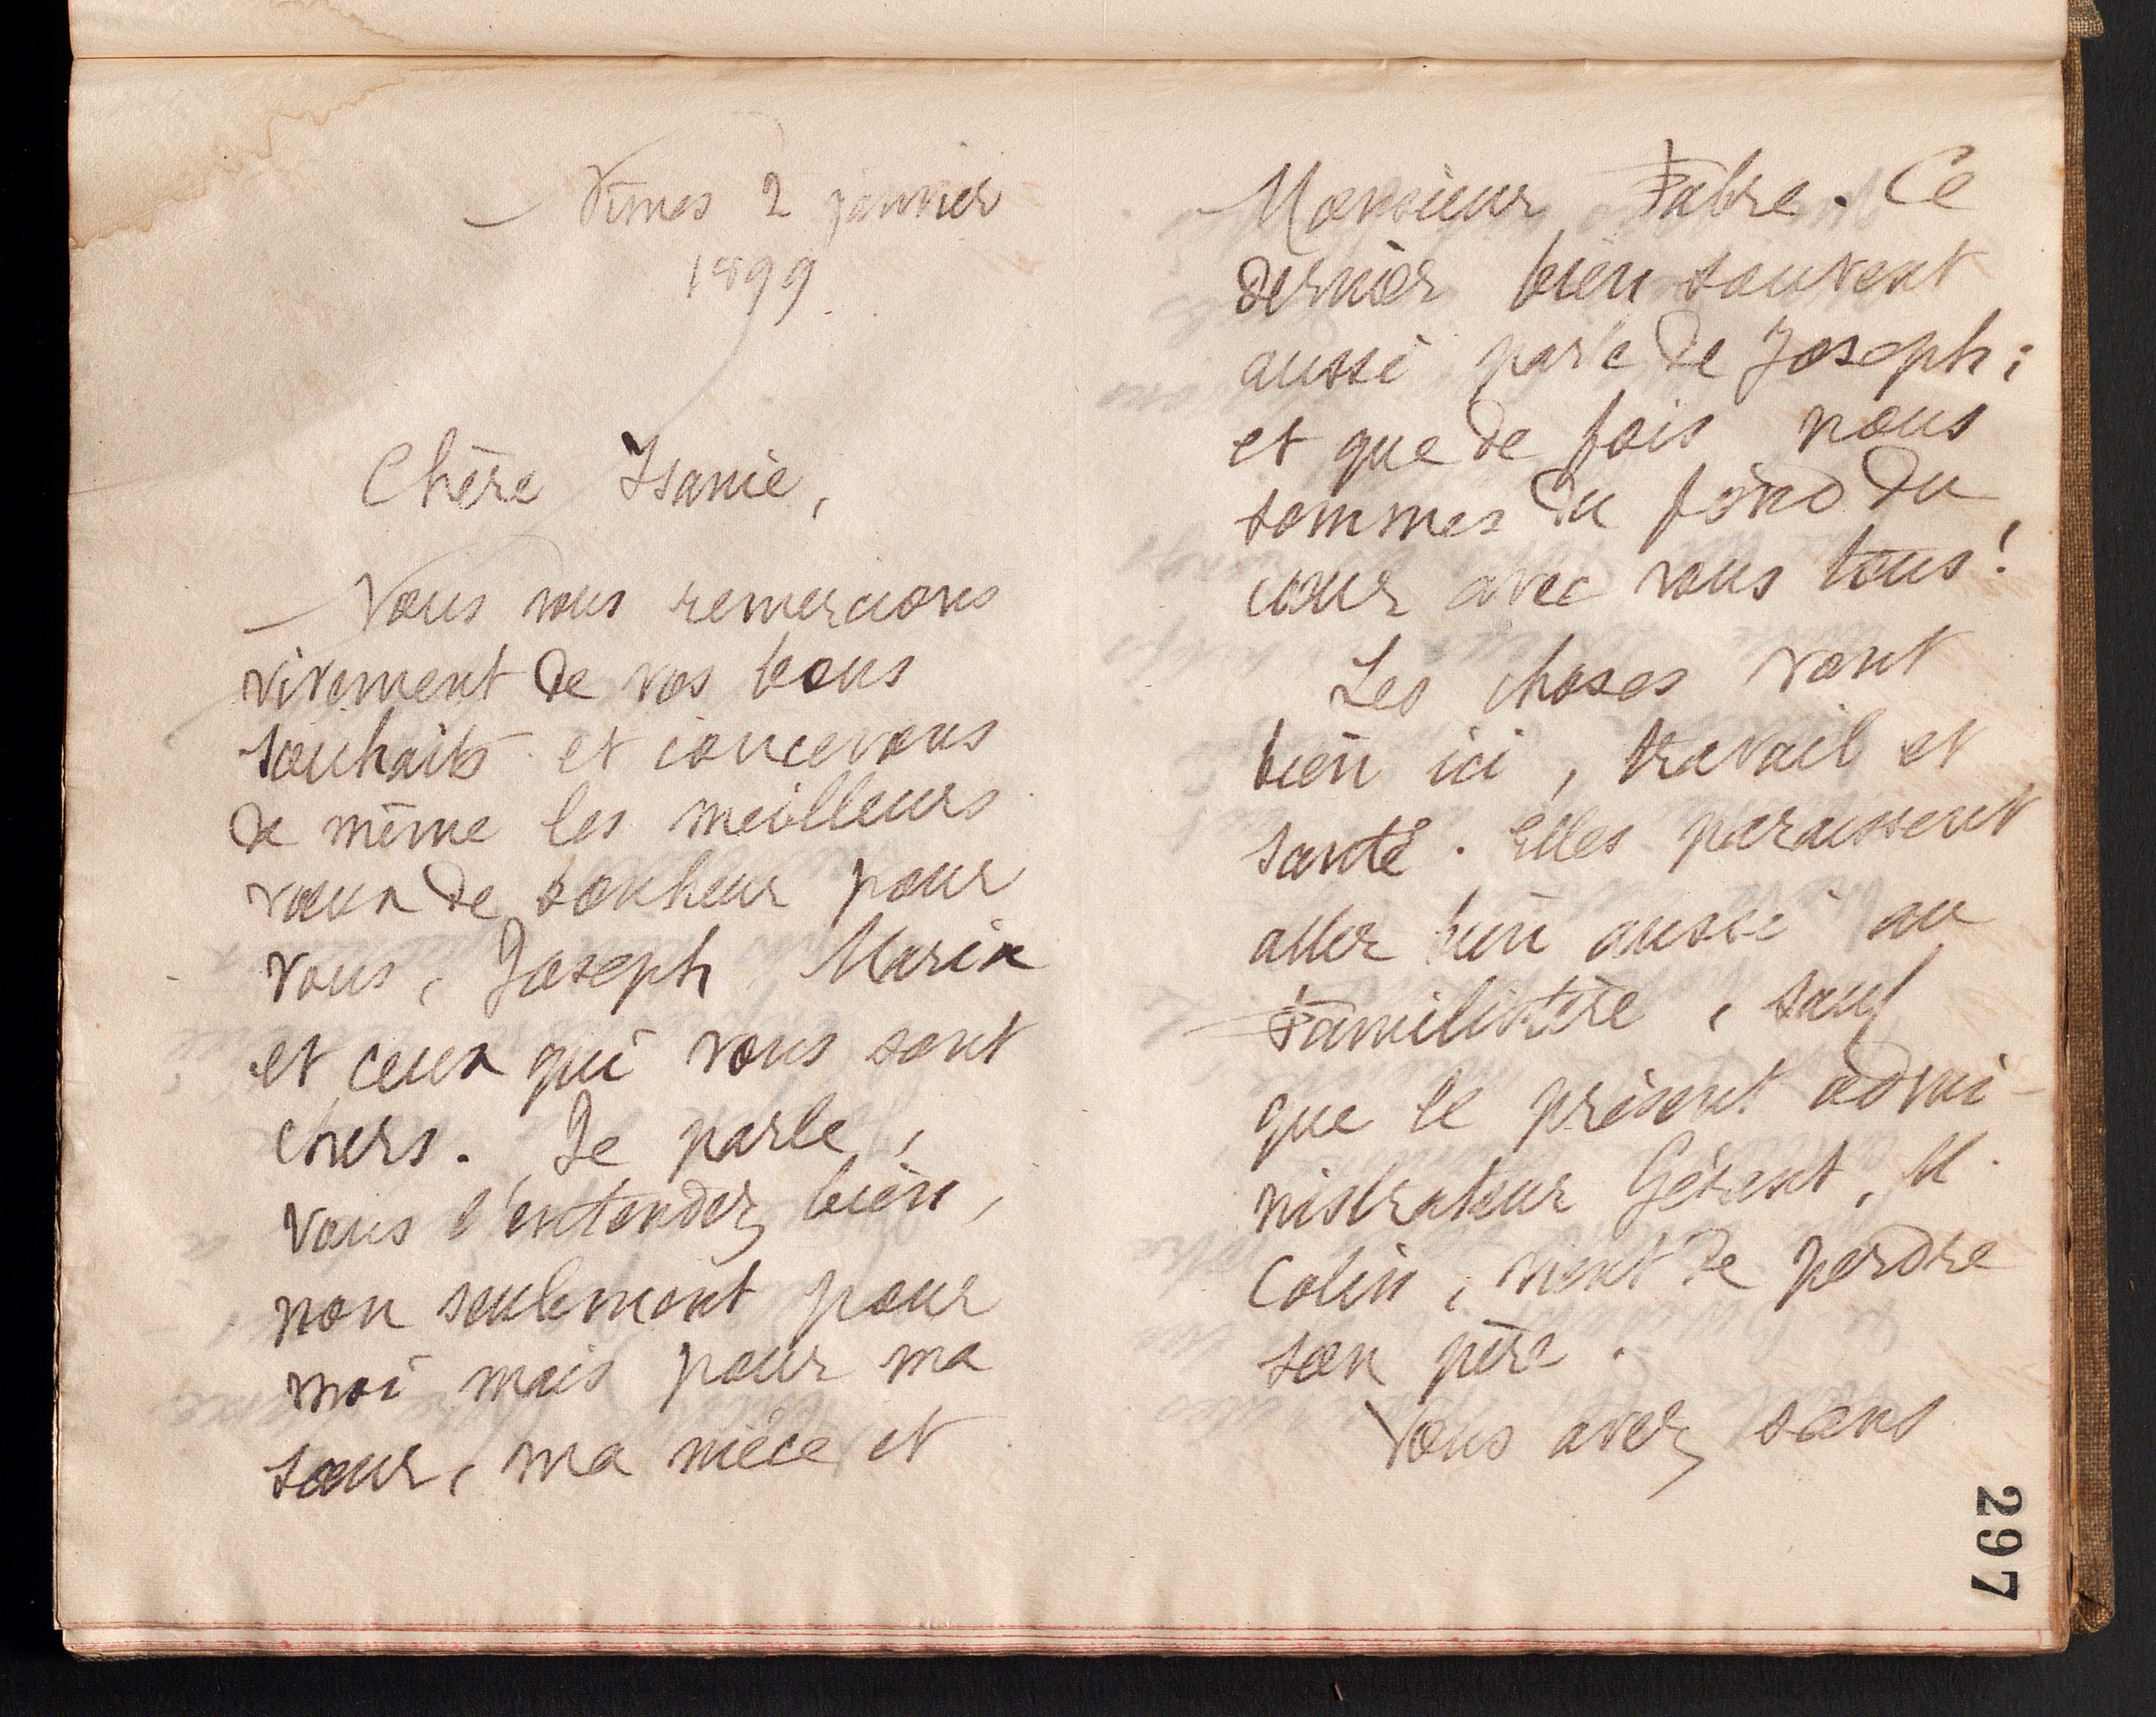 Nîmes 2 janvier
1899
Chère Isanie,
Nous vous remercions
vivement de vos bons
souhaits et concevons
de même les meilleurs
vœux de bonheur pour
vous, Joseph Marie
et ceux qui vous sont
chers. Je parle,
vous l'entendez bien,
non seulement pour
moi mais pour ma
sœur, ma nièce et
Monsieur Fabre. Ce
dernier bien souvent
aussi parle de Joseph ;
et que de fois nous
sommes du fond du
cœur avec vous tous !
Les choses vont
bien ici, travail et
santé. Elles paraissent
aller bien aussi au
Familistère, sauf
que le présent admi-
nistrateur Gérant, M.
Colin, vient de perdre
son père.
Vous avez sans
297